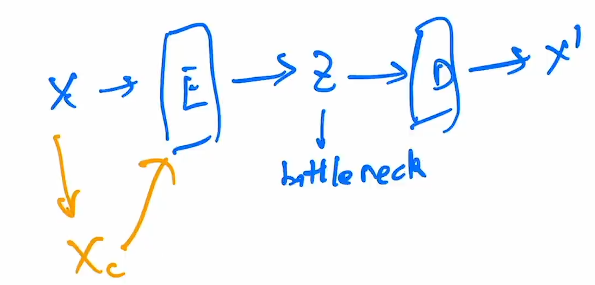 X → E → Z → D → X'
bottleneck
Xc